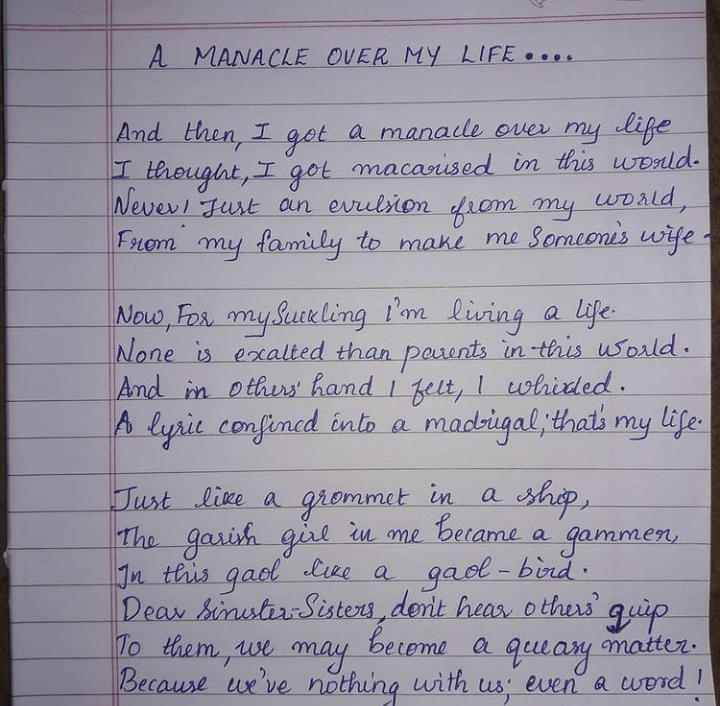 A MANACLE OVER MY LIFE....
And then, I got a manacle over my life
I thought, I got macarised in this world.
Never! Just an evulsion from my world,
From my family to make me Someone's wife.
Now, For my Suckling I'm living a life.
None is exalted than parents in this world.
And in others' hand I felt, I whirled.
A lyric confined into a madrigal, that's my life.
Just like a grommet in a ship,
The garish girl in me became a gammer,
In this gaol like a gaol-bird.
Dear Sinister-Sisters, don't hear others' quip
To them, we may become a queasy matter.
Because we've nothing with us; even a word!